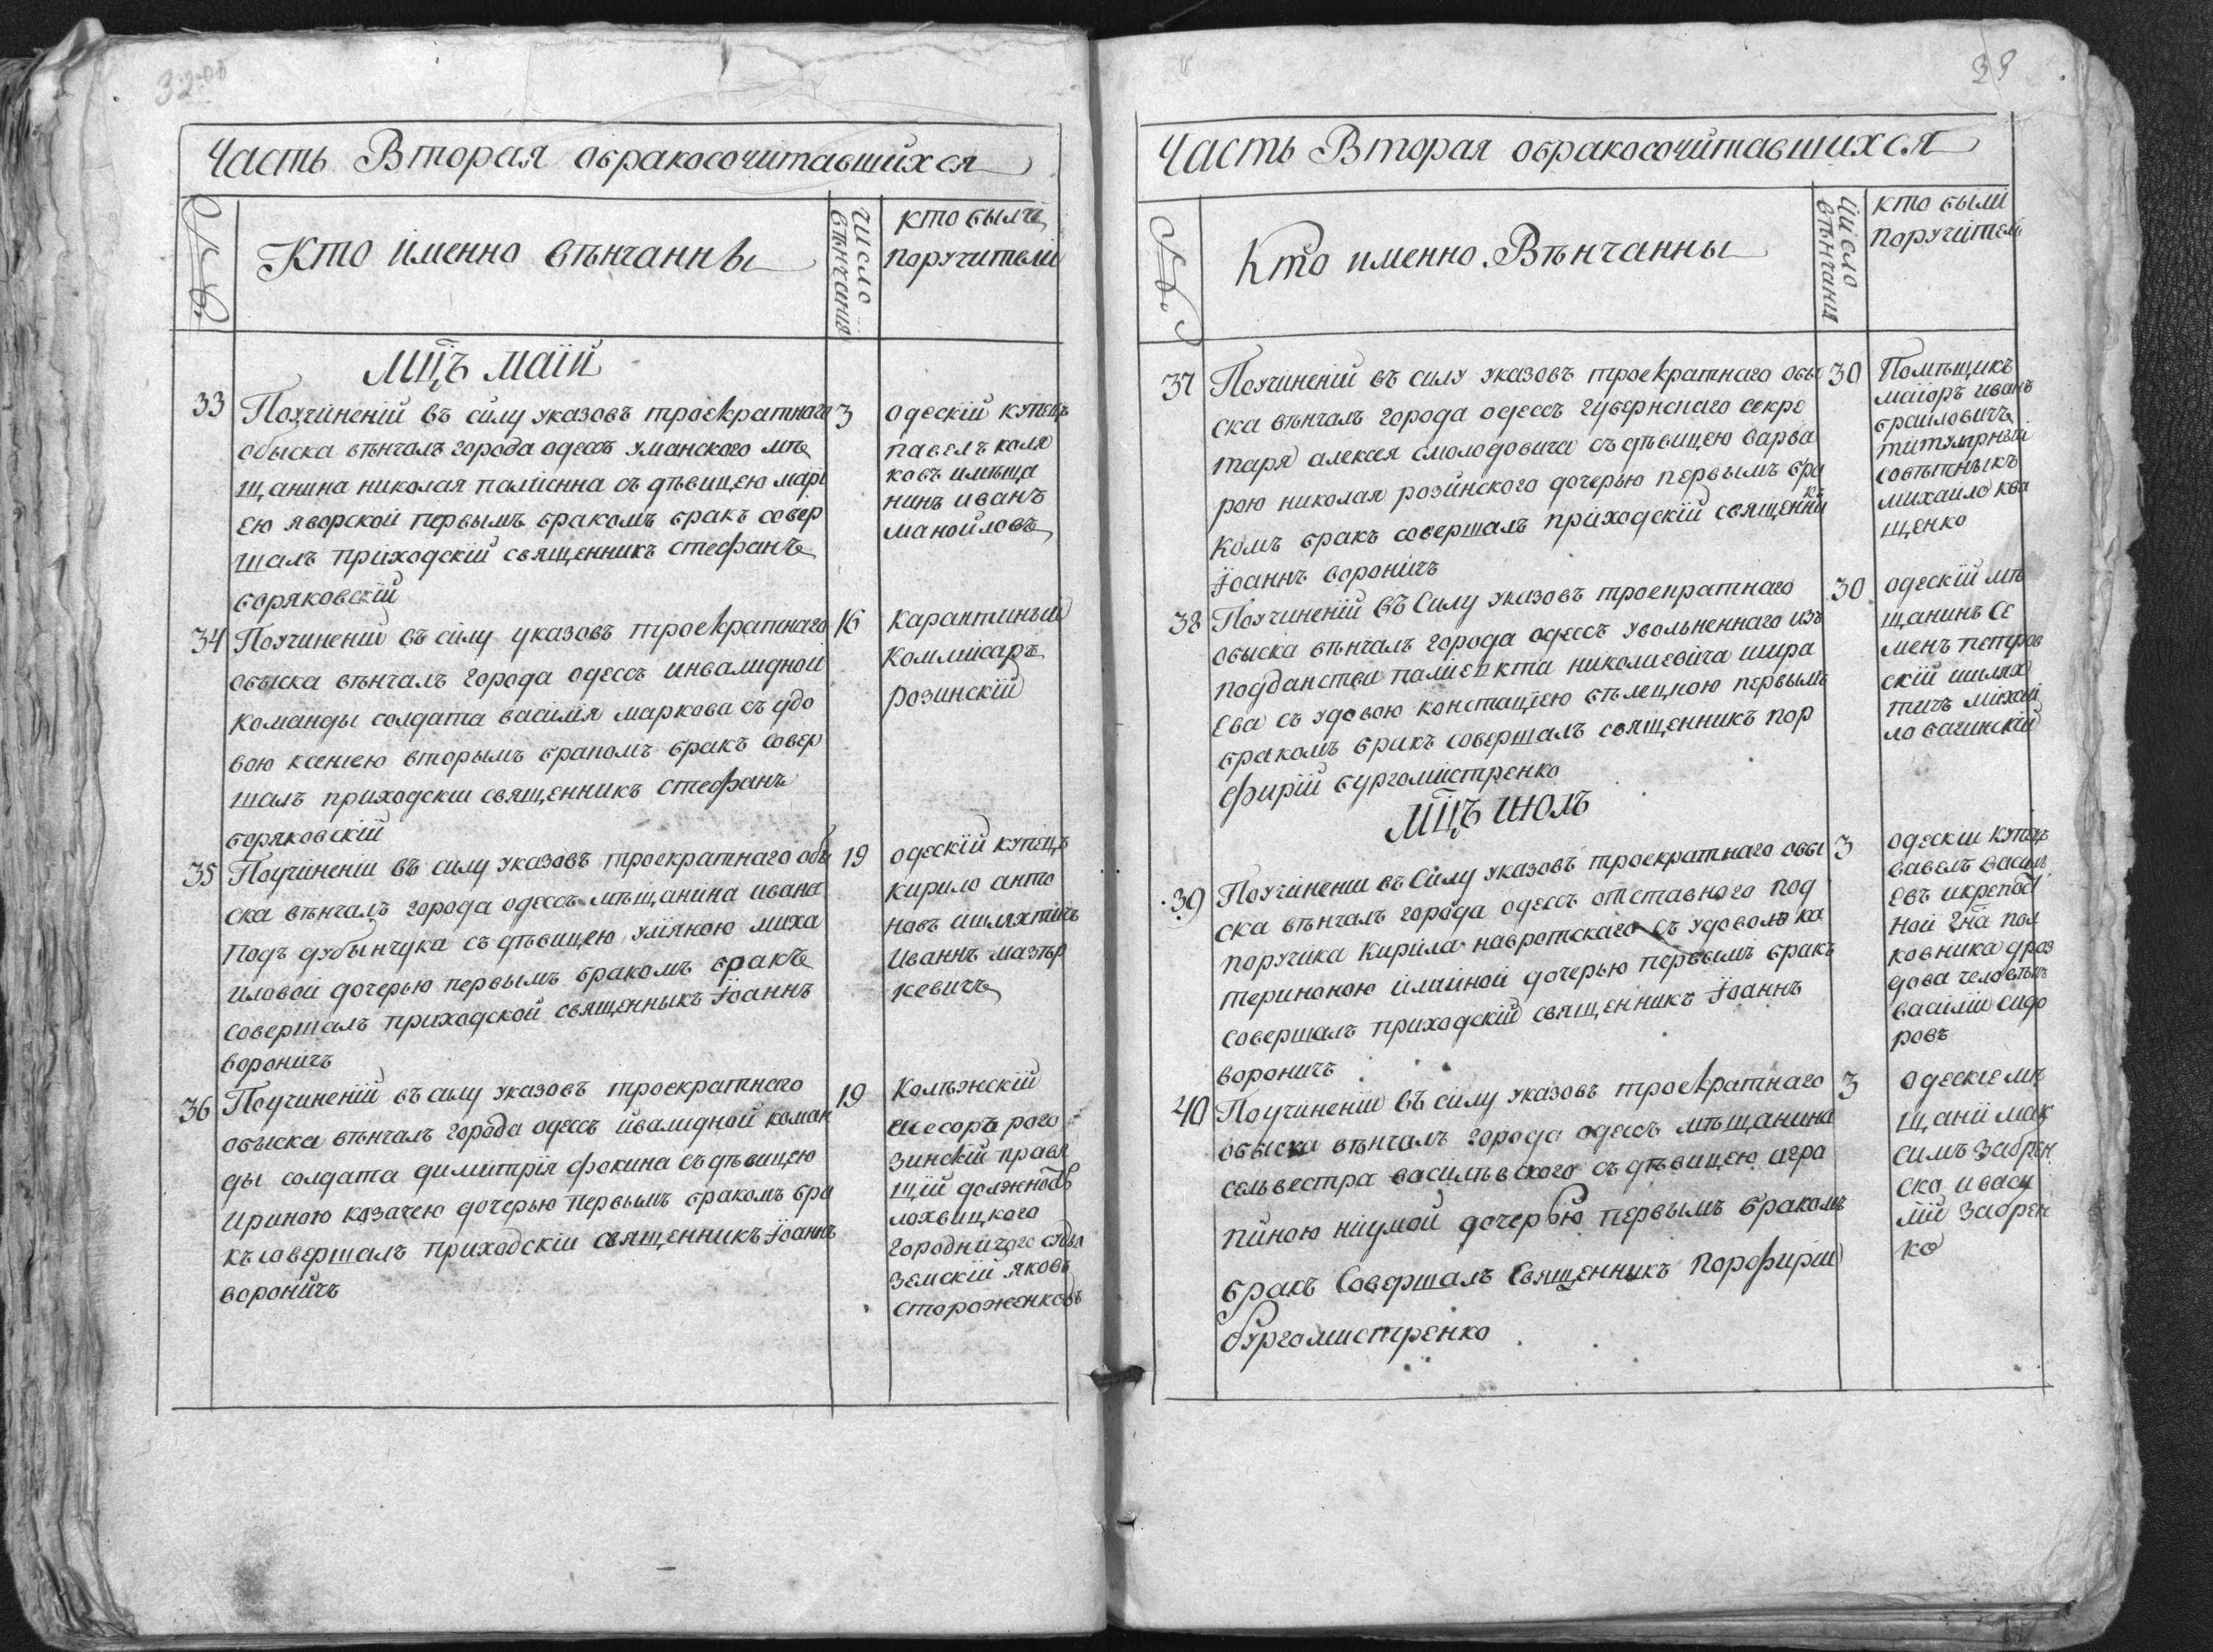 Часть Вторая обракосочитавшихся
№
Кто именно вѣнчанны
число вѣнчания
кто были
поручители
мцъ маій
33
Поучиненій въ силу указовъ троекратнаго
обыска вѣнчалъ города одессъ уманского мѣ
щанина николая
съ дѣвицею марі
ею яворской первымъ бракомъ бракъ совер
шалъ приходскій священникъ стефанъ
боряковскій
3
одескій купецъ
павелъ коля
ковъ имѣща
нинъ иванъ
манойловъ
34
Поучиненій въ силу указовъ троекратнаго
обыска вѣнчалъ города одессъ инвалидной
команды солдата василія маркова съ удо
вою ксенією вторымъ бракомъ бракъ совер
шалъ приходскіи священникъ стефанъ
боряковскій
16
карантинный
коммисаръ
розинскій
35
Поучиненіи въ силу указовъ троекратнаго обы
ска вѣнчалъ города одессъ мѣщанина ивана
подъ дубынчука съ дѣвицею уліяною миха
иловой дочерью первымъ бракомъ бракъ
совершалъ приходской священныкъ іоаннъ
вороничъ
19
одескій купецъ
кирило анто
новъ ишляхтичъ
Иваннъ мазур
кевичъ
36
Поучиненій въ силу указовъ троекратнаго
обыска вѣнчалъ города одессъ ивалидной коман
ды солдата димитрія фокина съ дѣвицею
Ириною козачею дочерью первымъ бракомъ бра
къ совершалъ приходскіи священникъ іоаннъ
вороничъ
19
Колѣжскій
асесоръ рого
зинскій правя
щій должность
лохвицкого
городничаго судья
земскій яковъ
стороженковъ
39
Часть Вторая обракосочитавшихся
№
Кто именно Вѣнчанны
число вѣнчания
кто были
поручители
37
Поучиненій въ силу указовъ троекратнаго обы
ска вѣнчалъ города одессъ губернскаго секре
таря алексея смолодовича съ дѣвицею варва
рою николая розинского дочерью первымъ бра
комъ бракъ совершалъ приходскій священни
къ
іоаннъ вороничъ
30
Помѣщикъ
маіоръ иванъ
браиловичъ
титулярный
совѣтныкъ
михайло ква
щенко
38
Поучиненій въ силу указовъ троекратнаго
обыска вѣнчалъ города одессъ увольненнаго изъ
подданства
николаевича шира
ева съ удовою
первымъ
бракомъ бракъ совершалъ священникъ пор
фирій бургомистренко
30
одескій мѣ
щанинъ се
менъ петров
скій шлях
тичъ михай
ло бачинскій
мцъ июль
39
Поучиненіи въ силу указовъ троекратнаго обы
ска вѣнчалъ города одессъ отставного под
поручика кирила навротскаго съ удовою ка
териною
дочерью первымъ бракъ
совершалъ приходскій священникъ іоаннъ
вороничъ
3
одескіи купецъ
павелъ васил
евъ икрепост
ной гна пол
ковника дроз
дова человѣкъ
василіи сидо
ровъ
40
Поучиненіи въ силу указовъ троекратнаго
обыска вѣнчалъ города одессъ мѣщанина
сельвестра василѣвского съ дѣвицею агра
пиною наумой дочерью первымъ бракомъ
бракъ Совершалъ Священникъ порфиріи
бургомистренко
3
одескіе мѣ
щани мак
симъ забрен
ско иваси
лій забрен
ко